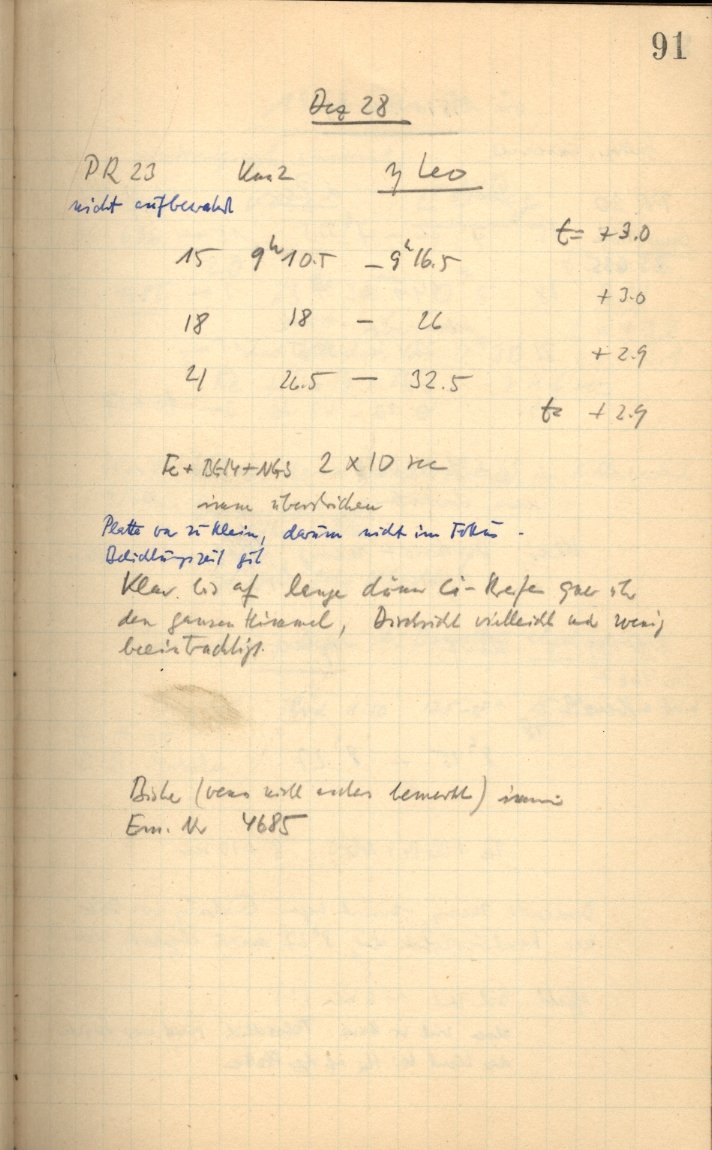 91
Dez 28
PR 23 Kam 2 η Leo
nicht aufbewahrt
t= +3.0
15 9h 10.5 – 9h 16.5
+3.0
18 18 – 26
+2.9
21 26.5 – 32.5
t= +2.9
Fe + BG14 + NG3 2 x 10 sec
immer überstrichen
Platte war zu klein, darum nicht im Fokus.
Belichtungszeit gut
Klar bis auf lange dünne Ci-Streifen quer über
den ganzen Himmel, Durchsicht vielleicht wenig
beeinträchtigt.
Bisher (wenn nicht anders bemerkt) immer
Em. Nr 4685